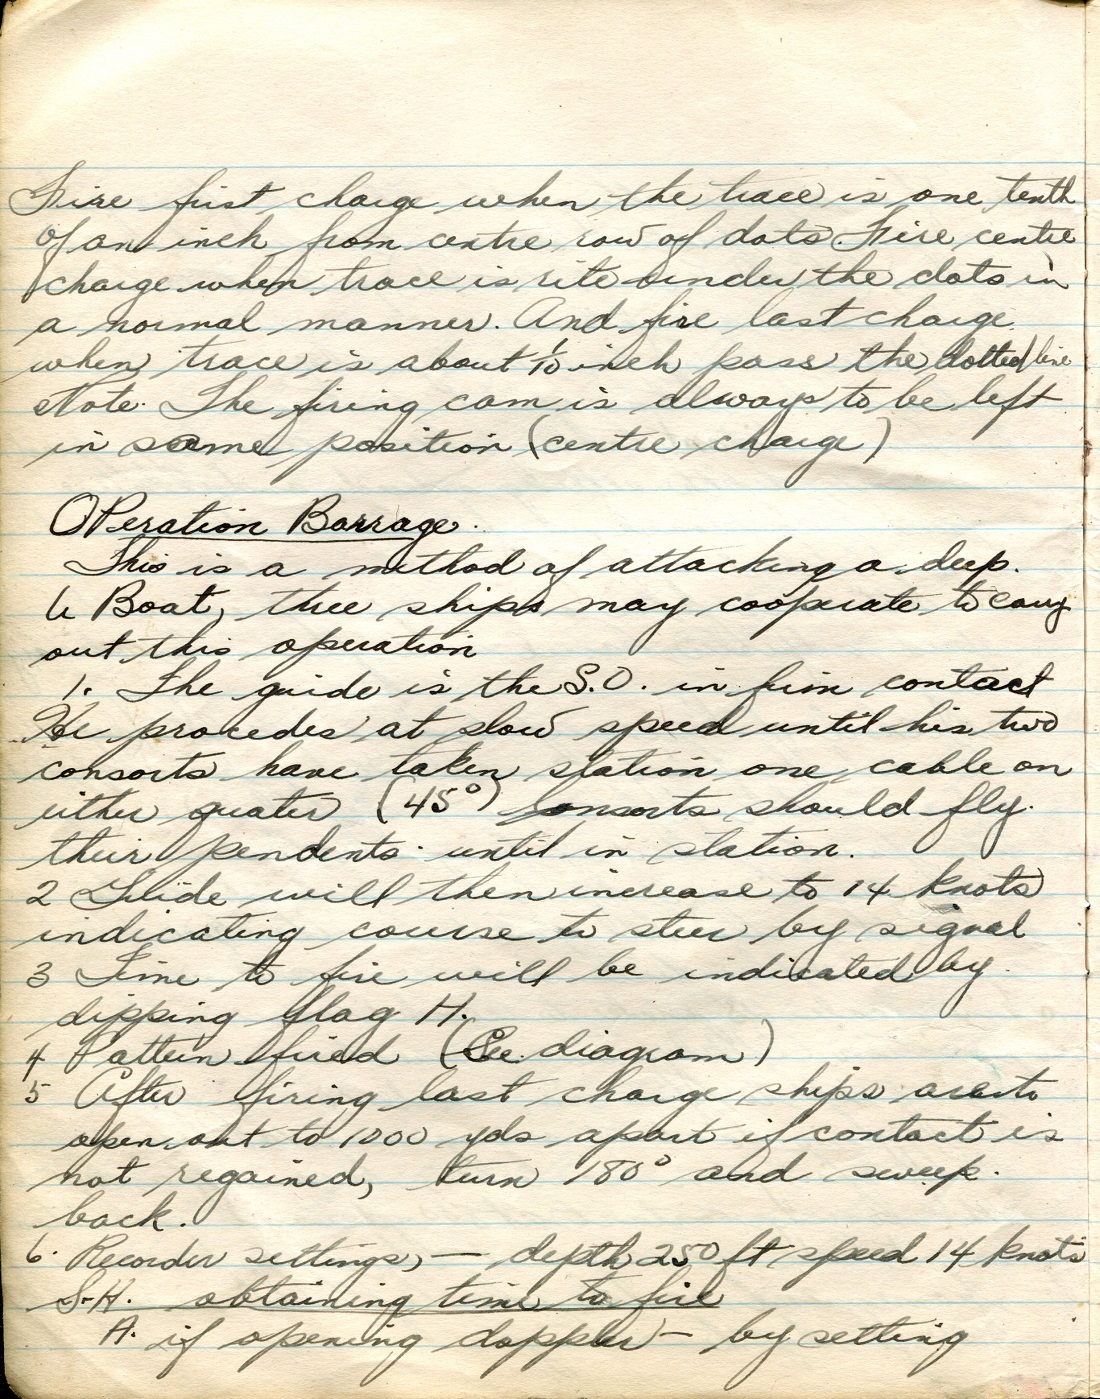 Fire first charge when the trace is one tenth
of an inch from centre row of dots. Fire centre
charge when trace is rite under the dots in
a normal manner. And fire last charge
when trace is about 1/10 inch pass the dotted line
Note. The firing cam is always to be left
in same position (centre charge)
OPeration Barrage.
This is a method of attacking a deep.
U Boat, three ships may cooperate to carry
out this operation
1. The guide is the S.O. in firm contact
He procedes at slow speed until his two
consorts have taken station one cable on
either quater (45°) Consorts should fly.
their pendents until in station.
2 Guide will then increase to 14 knots
indicating course to steer by signal
3 Time to fire will be indicated by.
dipping flag H.
4 Pattern fired (See diagram)
5 After firing last charge ships are to
open out to 1000 yds apart if contact is
not regained, turn 180° and sweep.
back.
6. Recorder settings, — depth 250 ft speed 14 knots
S.H. obtaining time to fire
A. if opening dopper — by setting